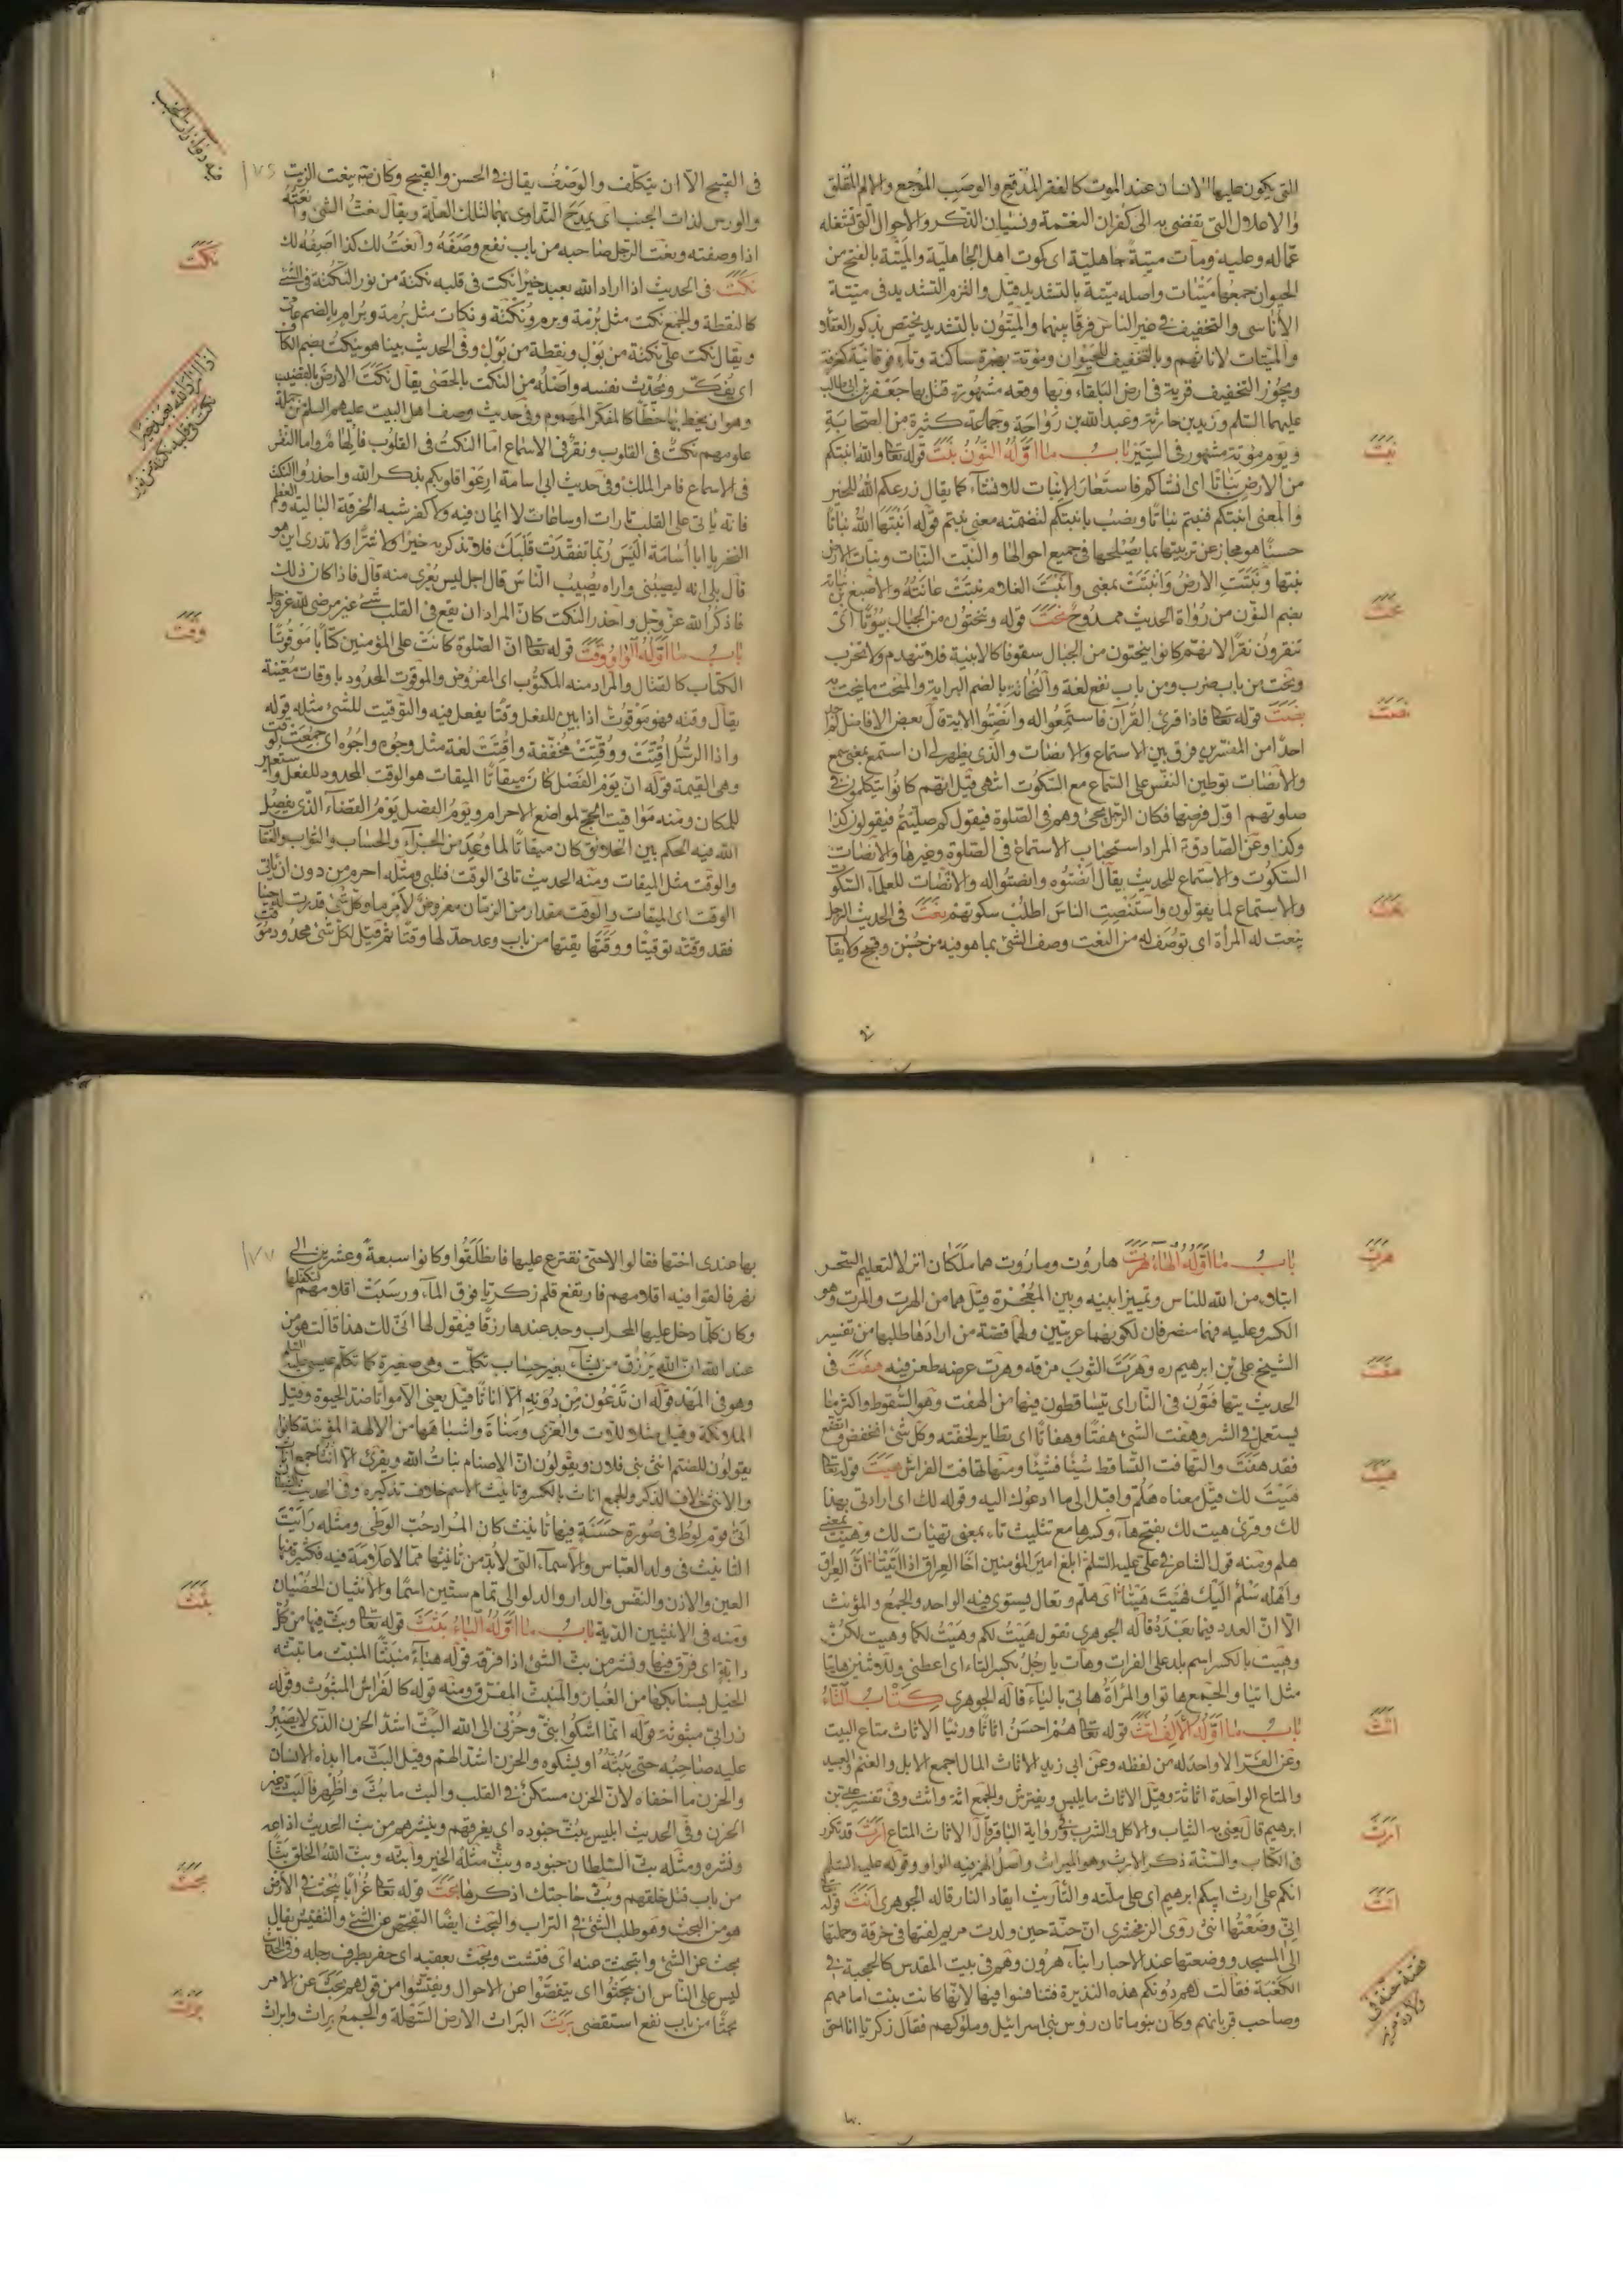 التى يكون عليها الانسان عند الموت كالفقر المدقع والوصب الموجع والالم المقلق
والاعلال التى تفضى به الى كفران النعمة ونسيان الذكر والاحوال التى تشغله
عماله وعليه ومات ميتة جاهلية اى كموت اهل الجاهلية والميتة بالفتح من
الحيوان جمعها ميتات واصله ميتة بالتشديد قيل والتزم التشديد فى ميتة
الأناسى والتخفيف فى غير الناس فرقا بينهما والميتون بالتشديد يختص بذكور العقلاء
والميتات لاناثهم وبالتخفيف للحيوان ومؤتة بهمزة ساكنة وتاء فوقانية كغرفة
ويجوز التخفيف قرية فى ارض البلقاء وبها وقعة مشهورة قتل بها جعفر بن ابى طالب
عليهما السلم وزيد بن حارثة وعبد الله بن رواحة وجماعة كثيرة من الصحابة
ويوم مؤتة مشهور فى السير باب ما اوله النون نبت قوله تعا والله انبتكم
من الارض نباتا اى انشاكم فاستعار الانبات للانشآء كما يقال زرعكم الله للخير
والمعنى انبتكم فنبتم نباتا ونصب بانبتكم لتضمنه معنى نبتم قوله انبتها الله نباتا
حسنا هو مجاز عن تربيتها بما يصلحها فى جميع احوالها والنبت النبات ونبات الارض
نبتها ونبتت الارض وانبتت بمعنى وانبت الغلام نبتت عانته والاصبغ بن نباتة
بضم النون من رواة الحديث ممدوح نحت قوله وتنحتون من الجبال بيوتا اى
تنقرون نقرا لانهم كانوا ينحتون من الجبال سقوفا كالابنية فلا تنهدم ولا تخرب
ونحت من باب ضرب ومن باب نفع لغة والنحاتة بالضم البراية والمنحت ما ينحت به
نصت قوله تعا فاذا قرئ القرآن فاستمعوا له وانصتوا الاية قال بعض الافاضل لم ار
احدا من المفسرين فرق بين الاستماع والانصات والذى يظهر لى ان استمع بمعنى سمع
والانصات توطين النفس على السماع مع السكوت انتهى قيل انهم كانوا يتكلمون فى
صلوتهم اول فرضها فكان الرجل يجئ وهم فى الصلوة فيقول كم صليتم فيقولون كذا
وكذا وعن الصادق ع المراد استحباب الاستماع فى الصلوة وغيرها والانصات
السكوت والاستماع للحديث يقال انصتوه وانصتوا له والانصات للعلمآء السكوت
والاستماع لما يقولون واستنصت الناس اطلب سكوتهم نعت فى الحديث الرجل
ينعت له المرأة اى توصف له من النعت وصف الشئ بما هو فيه من حسن وقبح ولا يقال
نبت
نحت
نصت
نعت
فى القبيح الا ان يتكلف والوصف يقال فى الحسن والقبيح وكان ينعت الزيت
والورس لذات الجنب اى يمدح التداوى بهما لتلك العلة ويقال نعت الشئ وانتعته
اذا وصفته ونعت الرجل صاحبه من باب نفع وصفه وانعت لك كذا اصفه لك
نكت فى الحديث اذا اراد الله بعبد خيرا نكت فى قلبه نكتة من نور النكتة فى الشئ
كالنقطة والجمع نكت مثل برمة وبرم ونكتة ونكات مثل برمة وبرام بالضم
ويقال نكت على نكتة من بول ونقطة من بول وفى الحديث بينا هو ينكت بضم الكاف
اى يفكر ويحدث نفسه واصله من النكت بالحصى يقال نكت الارض بالقضيب
وهو ان يخط بها خطا كالمفكر المهموم وفى حديث وصف اهل البيت عليهم السلم من جملة
علومهم نكت فى القلوب ونقر فى الاسماع اما النكت فى القلوب فالهام واما النقر
فى الاسماع فامر الملك وفى حديث ابى اسامة ارعوا قلوبكم بذكر الله واحذروا النكت
فانه ياتى على القلب تارات او ساعات لا ايمان فيه ولا كفر شبه الخرقة البالية والعظم
النخر يا ابا اسامة اليس ربما تفقدت قلبك فلا تذكر به خيرا ولا شرا ولا تدرى اين هو
قال بلى انه ليصيبنى واراه يصيب الناس قال اجل ليس يعرى منه قال فاذا كان ذلك
فاذكر الله عز وجل واحذر النكت كان المراد ان يقع فى القلب شئ غير مرضى لله عز وجل
باب ما اوله الواو وقت قوله تعا ان الصلوة كانت على المؤمنين كتابا موقوتا
الكتاب كالقتال والمراد منه المكتوب اى المفروض والموقوت المحدود باوقات معينة
يقال وقته فهو موقوت اذا بين للفعل وقتا يفعل فيه والتوقيت للشئ مثله قوله
واذا الرسل اقتت ووقتت مخففة واقتت لغة مثل وجوه واجوه اى جمعت لوقت
وهى القيمة قوله ان يوم الفصل كان ميقاتا الميقات هو الوقت المحدود للفعل واستعير
للمكان ومنه مواقيت الحج لمواضع الاحرام ويوم الفصل يوم القضاء الذى يفصل
الله فيه الحكم بين الخلائق كان ميقاتا لما وعد من الجزاء والحساب والثواب والعقاب
والوقت مثل الميقات ومنه الحديث تاتى الوقت فتلبى ومثله احرم من دون ان ياتى
الوقت اى الميقات والوقت مقدار من الزمان مفروض لامر ما وكل شئ قدرت له حينا
فقد وقته توقيتا ووقتها يقتها من باب وعد حد لها وقتا ثم قيل لكل شئ محدود موقوت
فيه دواء ذات الجنب
١٧٦
نكت
اذا اراد الله بعبد خيرا
نكت فى قلبه نكتة من نور
وقت
باب ما اوله الهاء هرت هاروت وماروت هما ملكان انزلا لتعليم السحر
ابتلاء من الله للناس وتمييزا بينه وبين المعجزة قيل هما من الهرت والمرت وهو
الكسر وعليه فهما منصرفان لكونهما عربيين ولهما قصة من ارادها طلبها من تفسير
الشيخ على بن ابرهيم ره وهرت الثوب مزقه وهرت عرضه طعن فيه هفت فى
الحديث يتهافتون فى النار اى يتساقطون فيها من الهفت وهو السقوط واكثر ما
يستعمل فى الشر وهفت الشئ هفتا وهفاتا اى تطاير لخفته وكل شئ انخفض واتضع
فقد هفت والتهافت التساقط شيئا فشيئا ومنه تهافت الفراش هيت قوله تعا
هيت لك قيل معناه هلم واقبل الى ما ادعوك اليه وقوله لك اى ارادتى بهذا
لك وقرئ هيت لك بفتح هآء وكسرها مع تثليث تاء بمعنى تهيات لك وهيت بمعنى
هلم ومنه قول الشاعر فى على عليه السلم ابلغ امير المؤمنين اخا العراق اذا اتيتا ان العراق
واهله سلم اليك فهيت هيتا اى هلم وتعال يستوى فيه الواحد والجمع والمؤنث
الا ان العدد فيما بعده قاله الجوهرى تقول هيت لكم وهيت لكما وهيت لكن
وهيت بالكسر اسم بلد على الفرات وهات يا رجل بكسر التاء اى اعطنى وللاثنين هاتيا
مثل اتيا والجمع هاتوا والمرأة هاتى بالياء قاله الجوهرى كتاب الثاء
باب ما اوله الالف اثث قوله تعا هم احسن اثاثا ورئيا الاثاث متاع البيت
وعن الفرا لا واحد له من لفظه وعن ابى زيد الاثاث المال اجمع الابل والغنم والعبيد
والمتاع الواحدة اثاثة وقيل الاثاث ما يلبس ويفترش والجمع اثة واثث وفى تفسير على بن
ابرهيم قال يعنى به الثياب والاكل والشرب وفى رواية الباقر قال الاثاث المتاع ارث قد تكرر
فى الكتاب والسنة ذكر الارث وهو الميراث واصل الهمز فيه الواو وقوله عليه السلم
انكم على ارث ابيكم ابرهيم اى على ملته والتاريث ايقاد النار قاله الجوهرى انث قوله تعا
انى وضعتها انثى روى الزمخشرى ان حنة حين ولدت مريم لفتها فى خرقة وحملتها
الى المسجد ووضعتها عند الاحبار ابناء هرون وهم فى بيت المقدس كالحجبة فى
الكعبة فقالت لهم دونكم هذه النذيرة فتنافسوا فيها لانها كانت بنت امامهم
وصاحب قربانهم وكان بنو ماثان رؤس بنى اسرائيل وملوكهم فقال زكريا انا احق
هرت
هفت
هيت
اثث
ارث
انث
قصة حنة فى
ولادة مريم
بها عندى اختها فقالوا لا حتى نقترع عليها فانطلقوا وكانوا سبعة وعشرين الى
نهر فالقوا فيه اقلامهم فارتفع قلم زكريا فوق المآء ورسبت اقلامهم فتكفلها
وكان كلما دخل عليها المحراب وجد عندها رزقا فيقول لها انى لك هذا قالت هو من
عند الله ان الله يرزق من يشآء بغير حساب تكلمت وهى صغيرة كما تكلم عيسى عليه السلم
وهو فى المهد قوله ان تدعون من دونه الا اناثا قيل يعنى الا مواتا ضد الحيوة وقيل
الملائكة وقيل مثل اللات والعزى ومناة واشباهها من الالهة المؤنثة كانوا
يقولون للصنم انثى بنى فلان ويقولون ان الاصنام بنات الله ويقرئ الا انثا جمع اناث
والانثى خلاف الذكر والجمع اناث بالكسر وتانيث الاسم خلاف تذكيره وفى الحديث
اتى قوم لوط فى صورة حسنة فيها تانيث كان المراد حب الوطى ومثله رايت
التانيث فى ولد العباس والاسمآء التى لابد من تانيثها مما لا علامة فيه فكثيرة منها
العين والاذن والنفس والدار والدلو الى تمام ستين اسما والانثيان الخصيتان
ومنه فى الانثيين الدية باب ما اوله الباء بثث قوله تعا وبث فيها من كل
دابة اى فرق فيها ونشر من بث الشئ اذا فرقه قوله هباء منبثا المنبث ما تبثه
الخيل بسنابكها من الغبار والمنبث المفترق ومنه قوله كالفراش المبثوث وقوله
زرابى مبثوثة قوله انما اشكوا بثى وحزنى الى الله البث اشد الحزن الذى لا يصبر
عليه صاحبه حتى يبثه او يشكوه والحزن اشد الهم وقيل البث ما ابداه الانسان
والحزن ما اخفاه لان الحزن مستكن فى القلب والبث ما بث واظهر فالبث غير
الحزن وفى الحديث ابليس يبث جنوده اى يفرقهم وينشرهم من بث الحديث اذاعه
ونشره ومثله بث السلطان جنوده وبث مثله الخبر وابثه وبث الله الخلق بثا
من باب قتل خلقهم وبث حاجتك اذكرها بحث قوله تعا غرابا يبحث فى الارض
هو من البحث وهو طلب الشئ فى التراب والبحث ايضا التفحص عن الشئ والتفتيش يقال
بحث عن الشئ وابتحث عنه اى فتشت وبحث بعقبه اى حفر بطرف رجله وفى الحديث
ليس على الناس ان يبحثوا اى يتفحصوا عن الاحوال ويفتشوا من قولهم بحث عن الامر
بحثا من باب نفع استقصى برث البراث الارض السهلة والجمع براث وابراث
١٧٧
بثث
بحث
برث